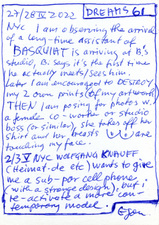 27/28 IV 2022
DREAMS 61
NYC I am observing the arrival
of a long-time ASSISTANT of
BASQUIAT is arriving at B.'s
studio, B. says it's the first time
he actually meets/sees him.
Later I am encouraged to DESTROY
my 2 own prints (of my artwork)
THEN I am posing for photos w.
a female co-worker or studio
boss (or similar), she takes off her
shirt and her breasts are
touching my face.
2/3 V NYC WOLFGANG KNAUFF
(Heimat-de etc) wants to give
me a sub-par cell phone
(with a strange design), but i
re-activate a more con-
temporary model.